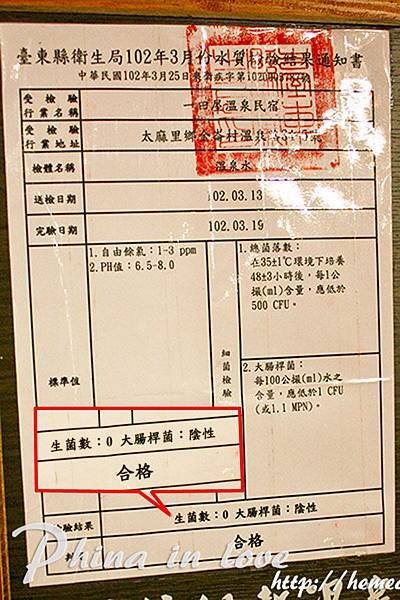 臺東縣衛生局102年3月份水質檢驗結果通知書
中華民國102年3月25日東衛疾字第
受檢驗
行業名稱
一田屋溫泉民宿
受檢驗
行業地址
太麻里鄉金崙村溫泉
檢體名稱
溫泉水
送檢日期
102.03.13
完驗日期
102.03.19
標準值
1.自由餘氯：1-3 ppm
2.PH值：6.5-8.0
細菌檢驗
1.總菌落數：
在35±1℃環境下培養
48±3小時後，每1公
撮(ml)含量，應低於
500 CFU。
2.大腸桿菌：
每100公撮(ml)水之
含量，應低於1 CFU
(或1.1 MPN)。
生菌數：0 大腸桿菌：陰性
合格
檢驗結果
生菌數：0 大腸桿菌：陰性
合格
Phina in love
http://